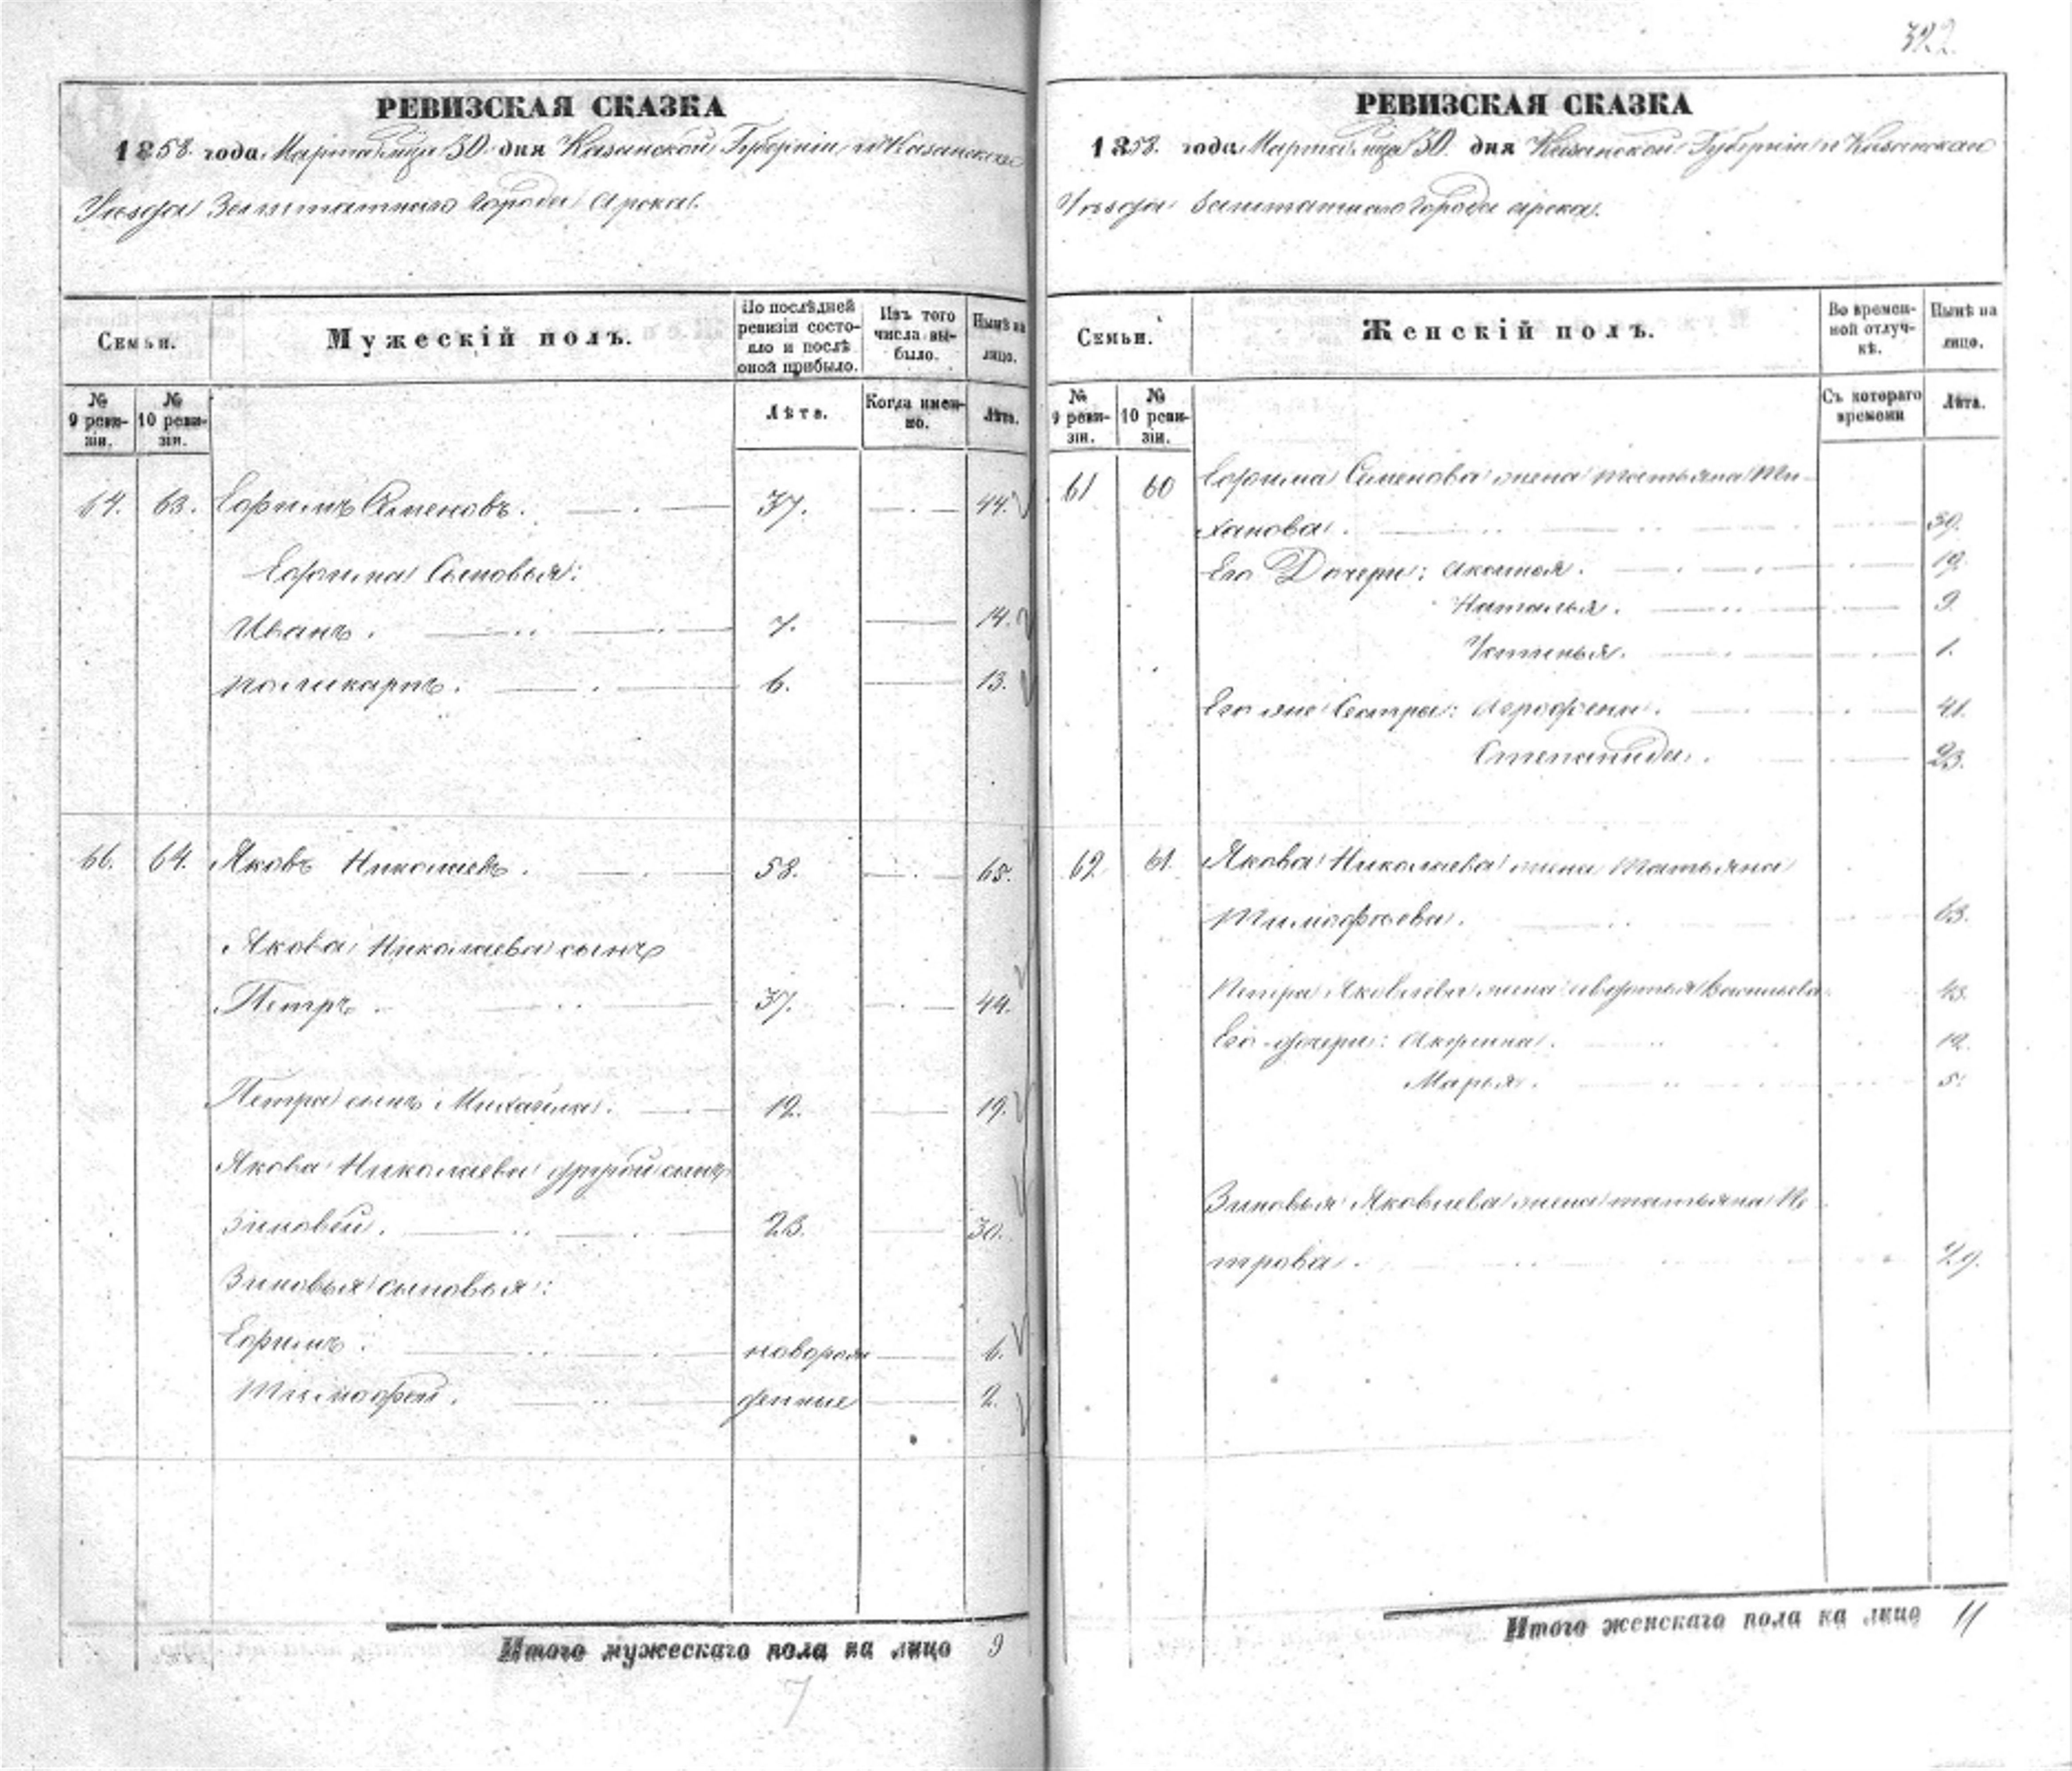 322
РЕВИЗСКАЯ СКАЗКА
1858. года Марта м-ца 30. дня Казанской Губерніи и Казанскаго
Уѣзда Заштатнаго города Арска.
Семьи.
Мужескій полъ.
По послѣдней ревизіи состояло и послѣ оной прибыло.
Изъ того числа выбыло.
Нынѣ на лицо.
№ 9 ревизіи.
№ 10 ревизіи.
Лѣта.
Когда именно.
Лѣта.
64. 63. Ефимъ Семеновъ. 37. 44.
Ефима Сыновья:
Иванъ. 7. 14.
Поликарпъ. 6. 13.
66. 64. Яковъ Николаевъ. 58. 65.
Якова Николаева сынъ
Петръ. 37. 44.
Петра сынъ Михайла. 12. 19.
Якова Николаева другой сынъ
Зиновей. 23. 30.
Зиновья сыновья:
Ефимъ. новорож 6.
Тимофей. денные 2.
Итого мужескаго пола на лицо 9
7
РЕВИЗСКАЯ СКАЗКА
1858. года Марта м-ца 30. дня Казанской Губерніи и Казанскаго
Уѣзда Заштатнаго города Арска.
Семьи.
Женскій полъ.
Во временной отлучкѣ.
Нынѣ на лицо.
№ 9 ревизіи.
№ 10 ревизіи.
Съ котораго времени
Лѣта.
61 60 Ефима Семенова жена Татьяна
39.
Его Дочери: Аколина. 19.
Наталья. 9.
Устинья. 1.
Его же Сестры: Аграфена. 41.
Степанида. 23.
62 61. Якова Николаева жена Татьяна
Тимофѣева. 63.
Петра Яковлева жена Авдотья Васильева 43.
Его дочери: Акулина. 12.
Марья. 5.
Зиновья Яковлева жена Татьяна Пе
трова. 29.
Итого женскаго пола на лицо 11